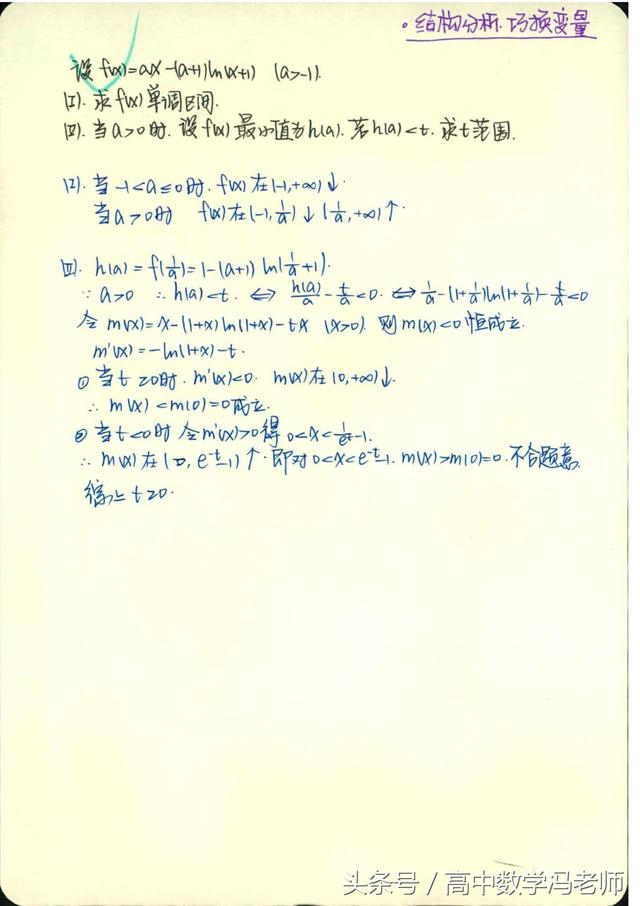 ·结构分析.巧换变量
设f(x)=ax-(a+1)ln(x+1) (a>-1).
(I). 求f(x)单调区间.
(II). 当a>0时. 设f(x)最小值为h(a). 若h(a)<t. 求t范围.
(I). 当-1<a≤0时. f(x)在(-1,+∞)↓.
当a>0时 f(x)在(-1,1/a)↓(1/a,+∞)↑.
(II). h(a)=f(1/a)=1-(a+1)ln(1/a+1).
∵a>0 ∴h(a)<t. ⇔ h(a)/a-t/a<0. ⇔ 1/a-(1+1/a)ln(1+1/a)-t/a<0
令m(x)=x-(1+x)ln(1+x)-tx (x>0). 则m(x)<0恒成立.
m'(x)=-ln(1+x)-t.
① 当t≥0时. m'(x)<0. m(x)在(0,+∞)↓.
∴m(x)<m(0)=0成立.
② 当t<0时 令m'(x)>0得 0<x<1/eᵗ-1.
∴m(x)在(0, e⁻ᵗ-1)↑. 即对0<x<e⁻ᵗ-1. m(x)>m(0)=0. 不合题意.
综上 t≥0.
头条号 / 高中数学冯老师